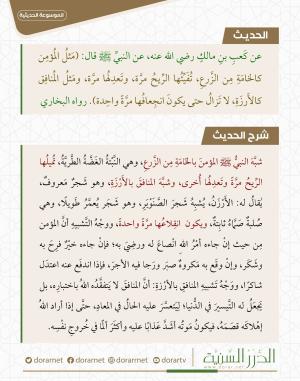 الموسوعة الحديثية
الحديث
عن كَعبِ بنِ مالكٍ رضي الله عنه، عن النبيِّ ﷺ قال: (مَثَلُ المُؤمِنِ
كالخامَةِ مِن الزَّرعِ، تُفَيِّئُها الرِّيحُ مرَّةً، وتَعدِلُها مرَّةً، ومَثَلُ المُنافِقِ
كالأرزَةِ، لا تَزالُ حتى يكونَ انجِعافُها مرَّةً واحِدةً). رواه البخاري
شرح الحديث
شبَّهَ النبيُّ ﷺ المؤمنَ بالخامَةِ مِن الزَّرعِ، وهي النَّبْتةُ الغَضَّةُ الطَّريَّةُ، تُميلُها
الرِّيحُ مرَّةً وتَعدِلُها أُخرى، وشبَّهَ المنافقَ بالأَرْزَةِ، وهو شجَرٌ مَعروفٌ،
يُقالُ له: الأَرْزُن، يُشبِهُ شجَرَ الصَّنَوبَرِ، وهو شجَرٌ يُعمَّرُ طويلًا، وهي
صُلبةٌ صَمَّاءُ ثابتةٌ، ويكون انقِلاعُها مرَّةً واحدةً، ووجْهُ التَّشبيهِ أنَّ المؤمنَ
مِن حيثُ إنْ جاءه أمْرُ اللهِ انْصاعَ له ورضِيَ به؛ فإنْ جاءه خيْرٌ فرِحَ به
وشَكَر، وإنْ وقَع به مَكروهٌ صبَرَ ورَجا فيه الأجرَ، فإذا اندفَعَ عنه اعتدَلَ
شاكرًا، ووجْهُ تَشبيهِ المنافقِ بالأَرْزَةِ: أنَّ المنافقَ لا يَتفقَّدُه اللهُ باختبارِه، بل
يَجعَلُ له التَّيسيرَ في الدُّنيا؛ ليَتعسَّرَ عليه الحالُ في المعادِ، حتَّى إذا أراد اللهُ
إهْلاكَه قصَمَهُ، فيكونُ مَوتُه أشَدَّ عذابًا عليه وأكثرَ ألَمًا في خُروجِ نفْسِه.
الدرر السنية
www.dorar.net
dorarnet
dorarnet
dorarnet
dorartv